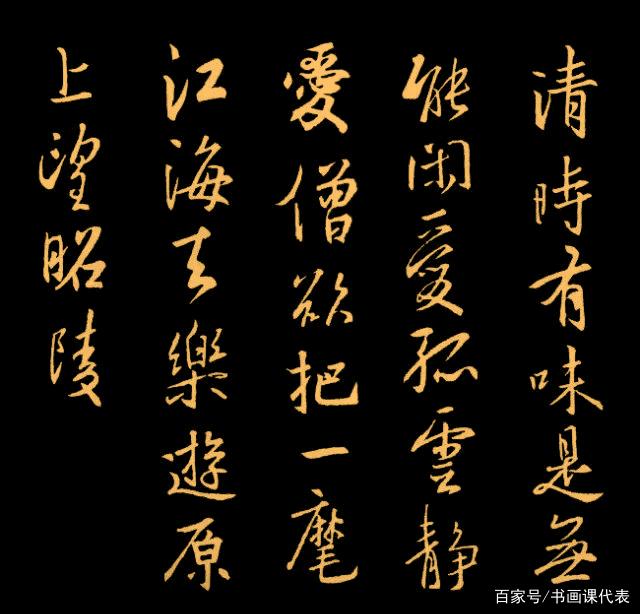 清時有味是無
能閑愛孤雲静
愛僧欲把一麾
江海去樂遊原
上望昭陵
百家号/书画课代表